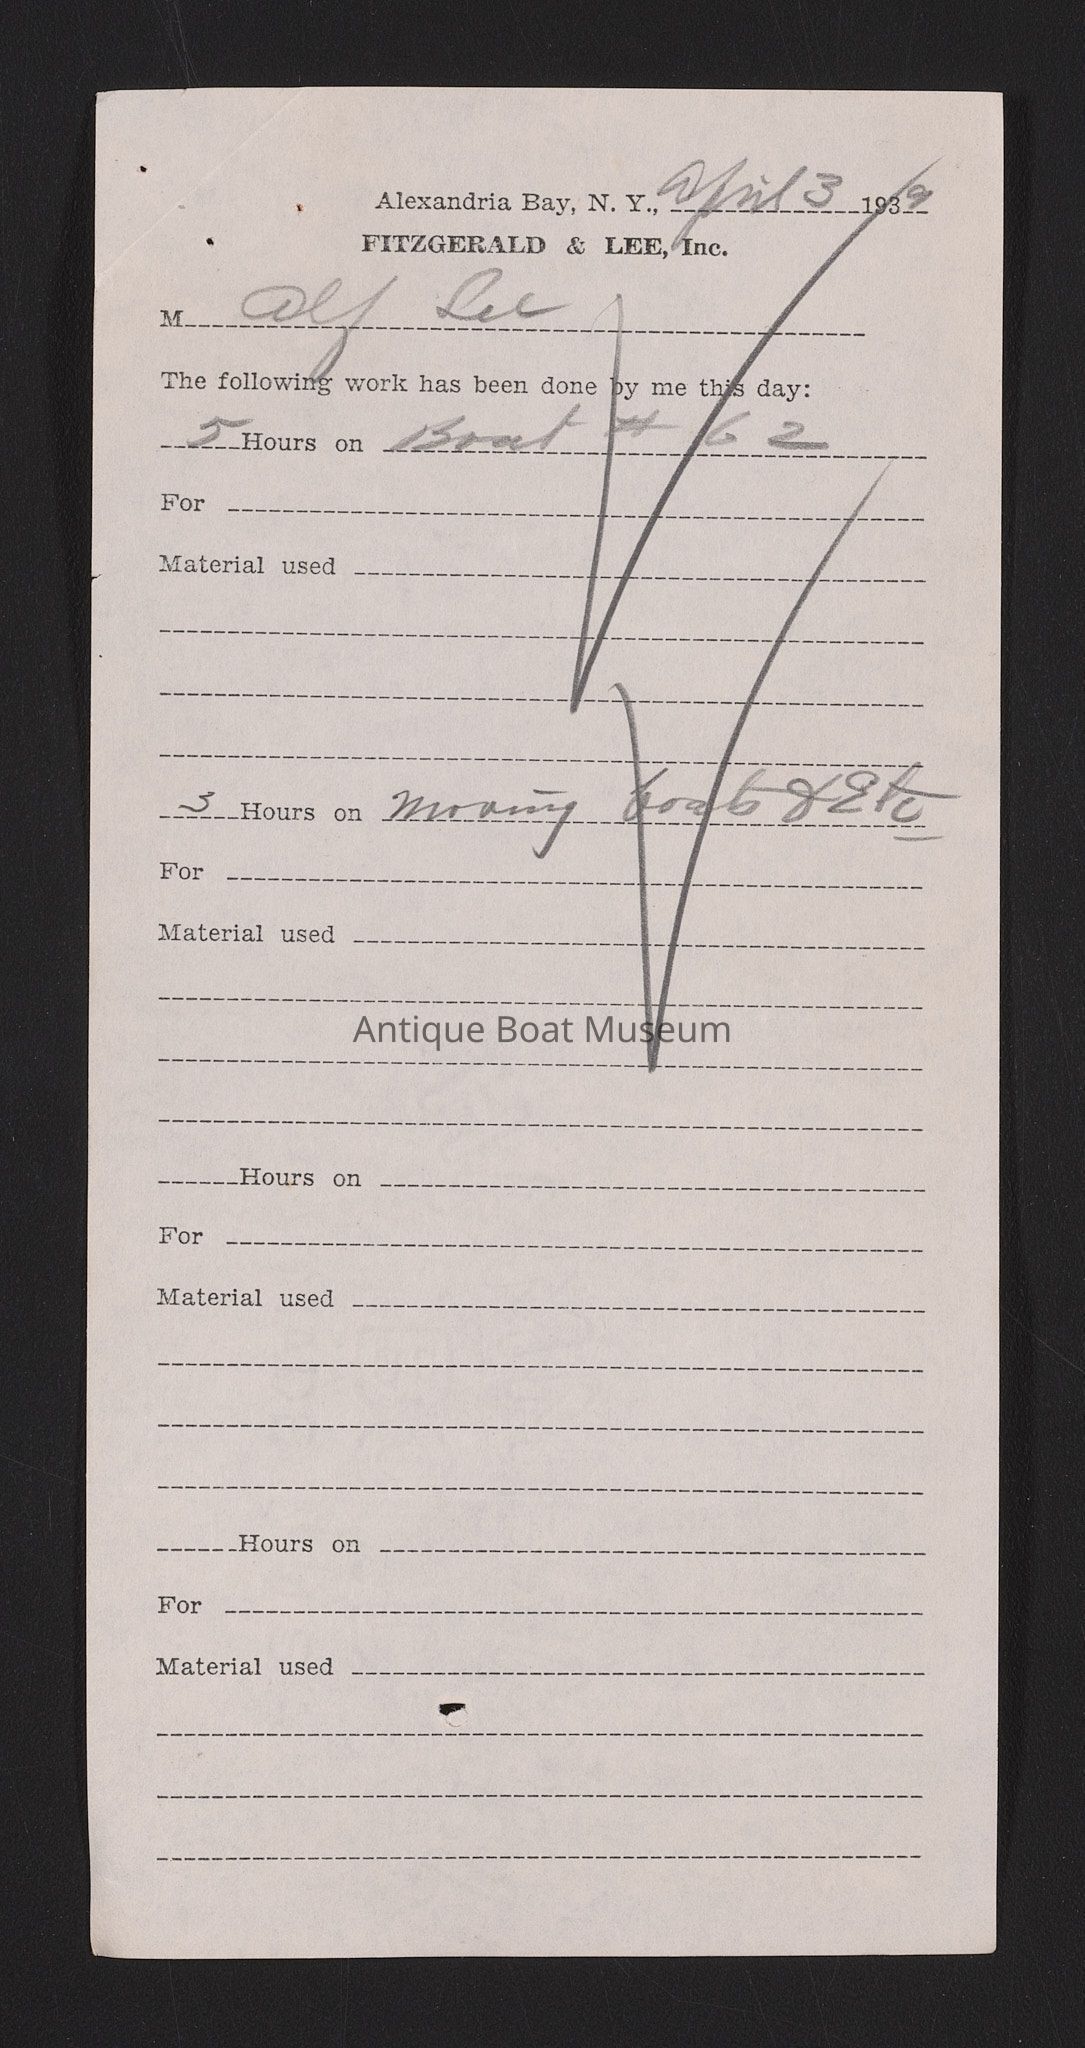 Alexandria Bay, N. Y., April 3 1939
FITZGERALD & LEE, Inc.
M Alf Lee
The following work has been done by me this day:
5 Hours on Boat # 62
For
Material used
3 Hours on Moving boats & Etc
For
Material used
Antique Boat Museum
Hours on
For
Material used
Hours on
For
Material used